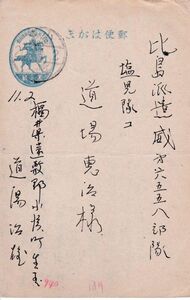 郵便はがき
比島派遣威第六五五八部隊
塩見隊コ
道場惠治様
福井県遠敷郡小浜町生玉
道場治雄